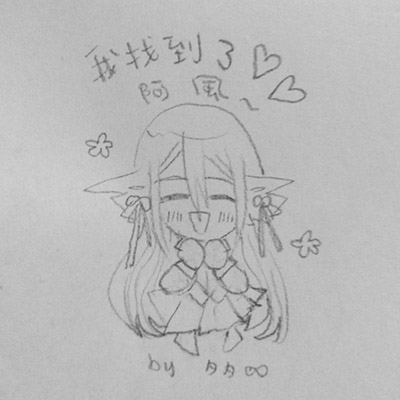 我找到了
阿風~
by 夕夕∞